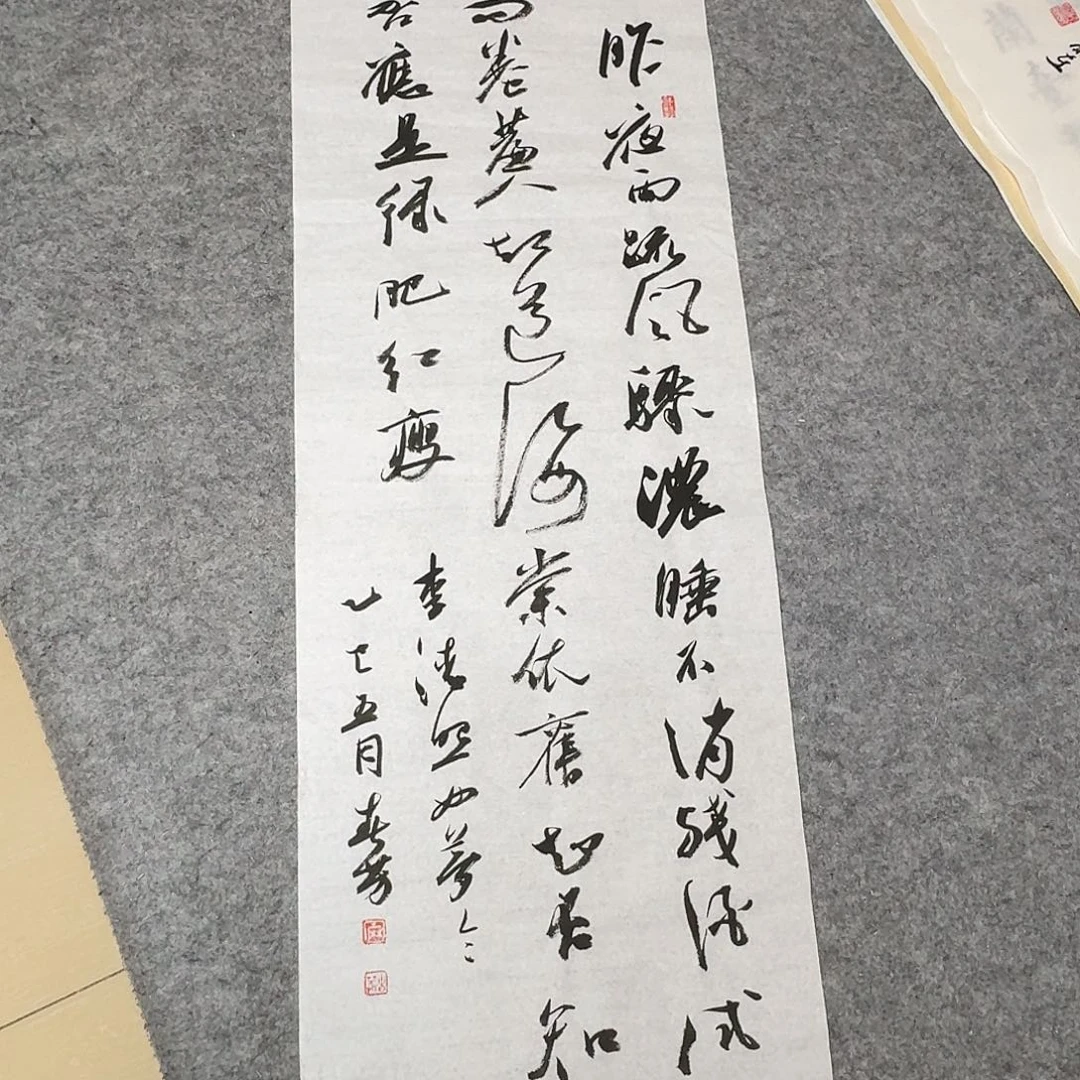 昨夜雨疏風驟濃睡不消殘酒試
問卷簾人却道海棠依舊知否知
否應是綠肥紅瘦
李清照如夢令
乙巳五月春芳